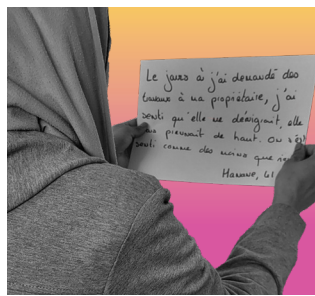 Le jours où j'ai demandé des
travaux à ma propriétaire, j'ai
senti qu'elle me dénigrait, elle
me prenait de haut. On s'est
senti comme des moins que rien
Hanane, 41